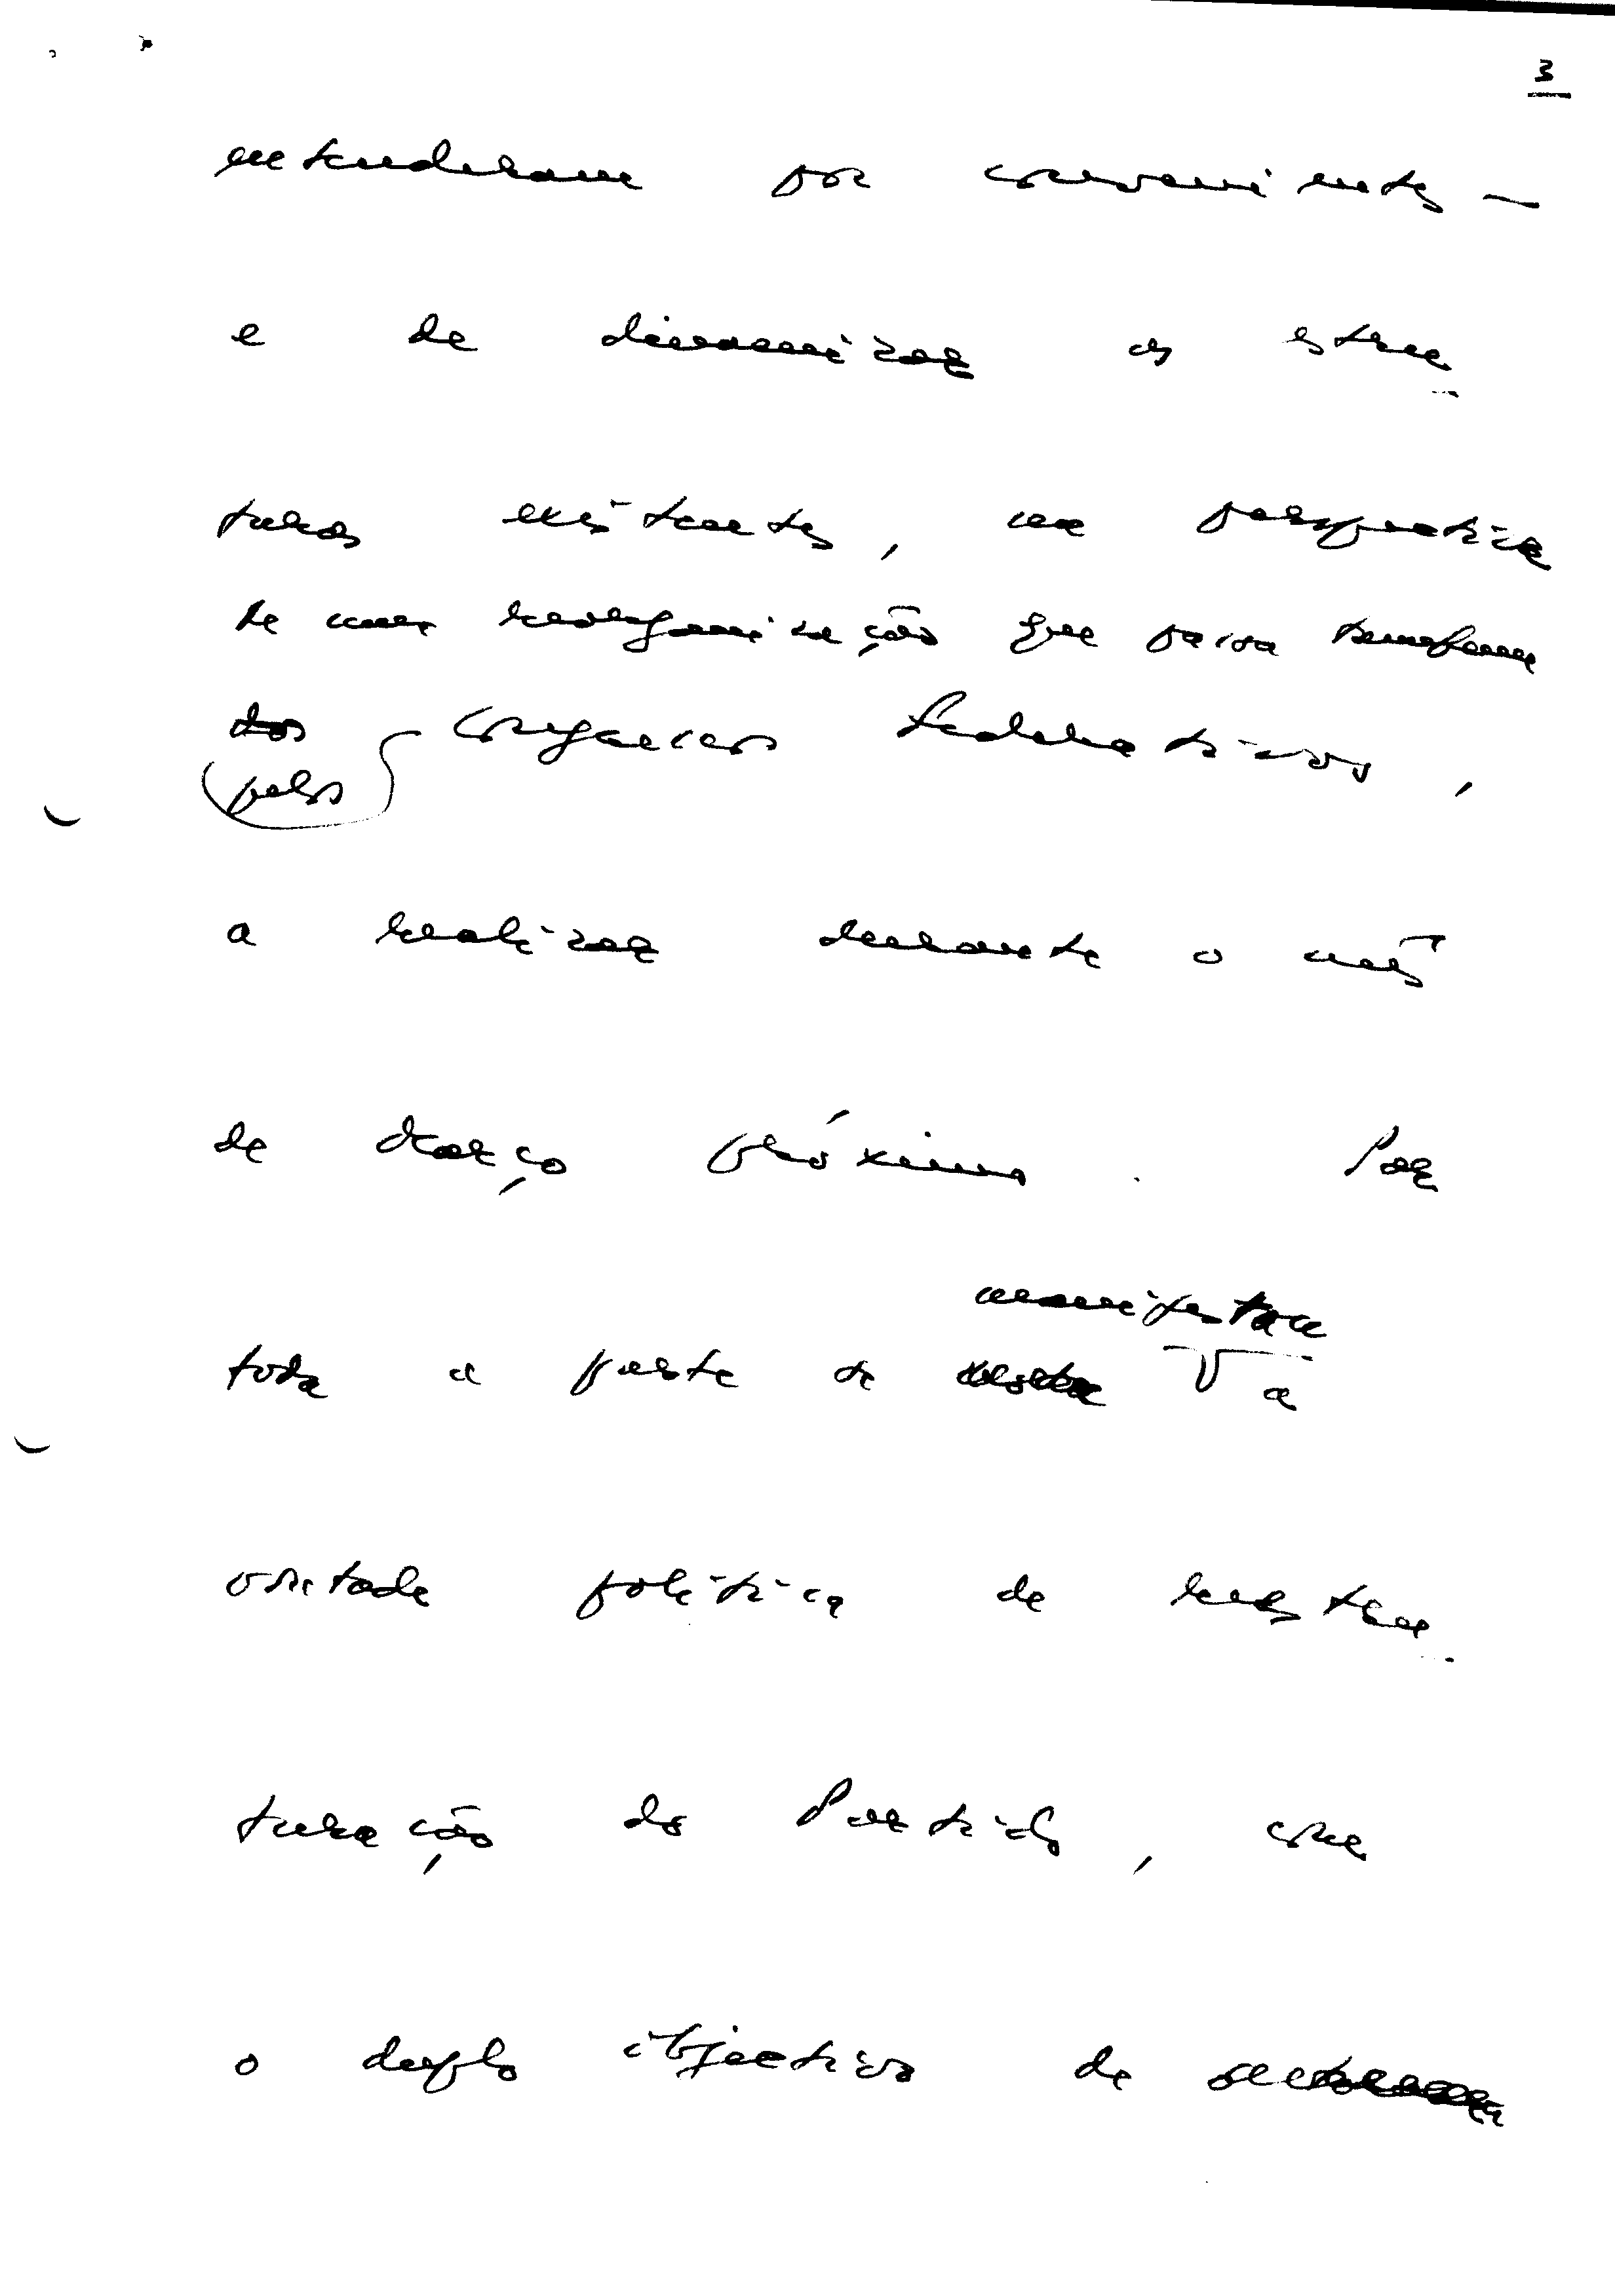 3
entenderam por convenientes —
e de dinamizar as estru-
turas existentes, na perspectiva
de uma reorganização que passa também
dos congressos federativos,
pelos
a realizar durante o mês
de Março próximo. Por
manifestar
toda a parte se a
vontade política de reestru-
turação do Partido, com
o duplo objectivo de